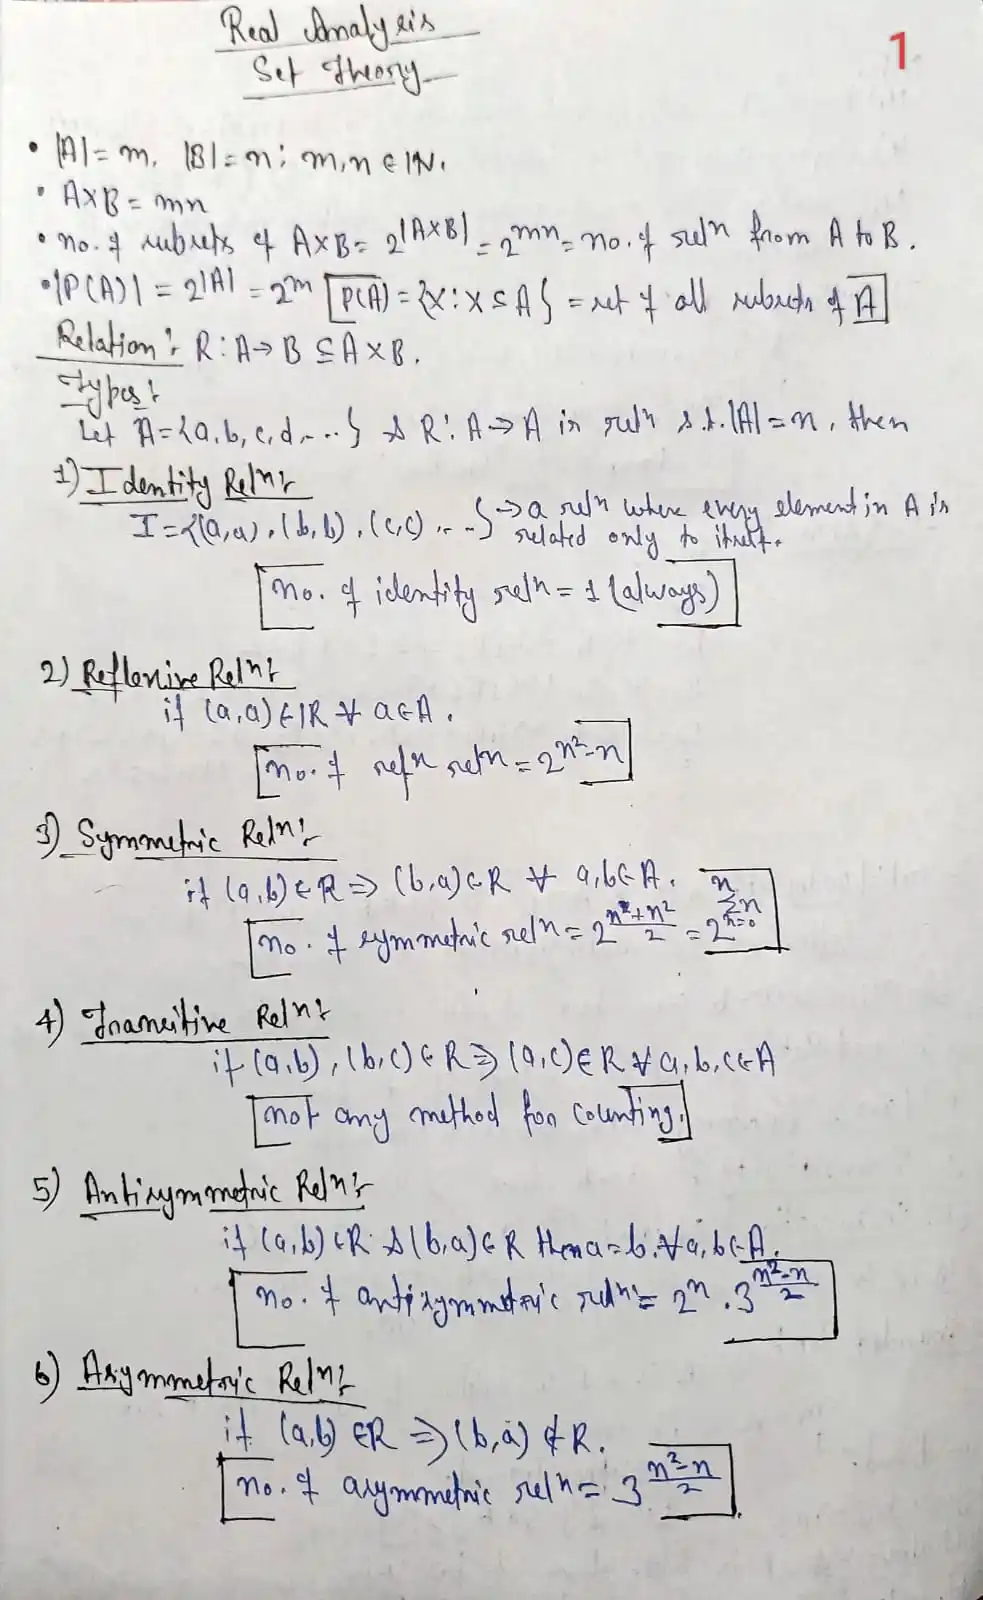 Real Analysis
Set Theory
1
• |A| = m, |B| = n ; m,n ∈ IN.
• A×B = mn
• no. of subsets of A×B = 2^|A×B| = 2^mn = no. of relⁿ from A to B.
• |P(A)| = 2^|A| = 2^m [P(A) = {X : X ⊆ A} = set of all subsets of A]
Relation :- R : A → B ⊆ A×B.
Types :-
Let A = {a, b, c, d, ...} & R : A → A is relⁿ s.t. |A| = n, then
1) Identity Relⁿ :-
I = {(a,a), (b,b), (c,c), ...} → a relⁿ where every element in A is
related only to itself.
[no. of identity relⁿ = 1 (always)]
2) Reflexive Relⁿ :-
if (a,a) ∈ IR ∀ a ∈ A.
[no. of refⁿ relⁿ = 2^(n²-n)]
3) Symmetric Relⁿ :-
if (a,b) ∈ R ⇒ (b,a) ∈ R ∀ a,b ∈ A.
[no. of symmetric relⁿ = 2^((n+n²)/2) = 2^(Σ_{n=0}^{n} n)]
4) Transitive Relⁿ :-
if (a,b), (b,c) ∈ R ⇒ (a,c) ∈ R ∀ a,b,c ∈ A
[not any method for counting.]
5) Antisymmetric Relⁿ :-
if (a,b) ∈ R & (b,a) ∈ R then a = b. ∀ a,b ∈ A.
[no. of antisymmetric relⁿ = 2^n . 3^((n²-n)/2)]
6) Asymmetric Relⁿ :-
if (a,b) ∈ R ⇒ (b,a) ∉ R.
[no. of asymmetric relⁿ = 3^((n²-n)/2)]